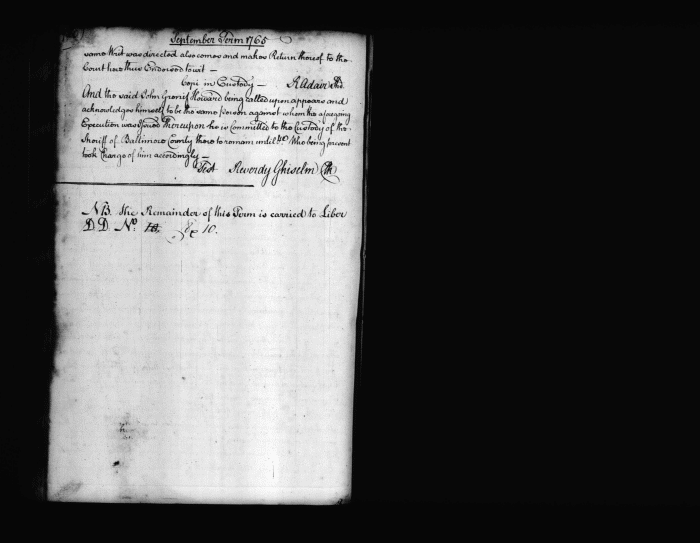 September Term 1765
same Writ was directed also comes and makes Return thereof to the
Court here thus Endorsed to wit —
Cepi in Custody — R Adair Shr.
And the said John Howard being called upon appears and
acknowledges himself to be the same person against whom the aforegoing
Execution was Issued Thereupon he is Committed to the Custody of the
Sheriff of Baltimore County there to remain until &c Who being present
took Charge of him accordingly —
Test Reverdy Ghiselin Clk
NB. the Remainder of this Term is carried to Liber
D D. No. 10.